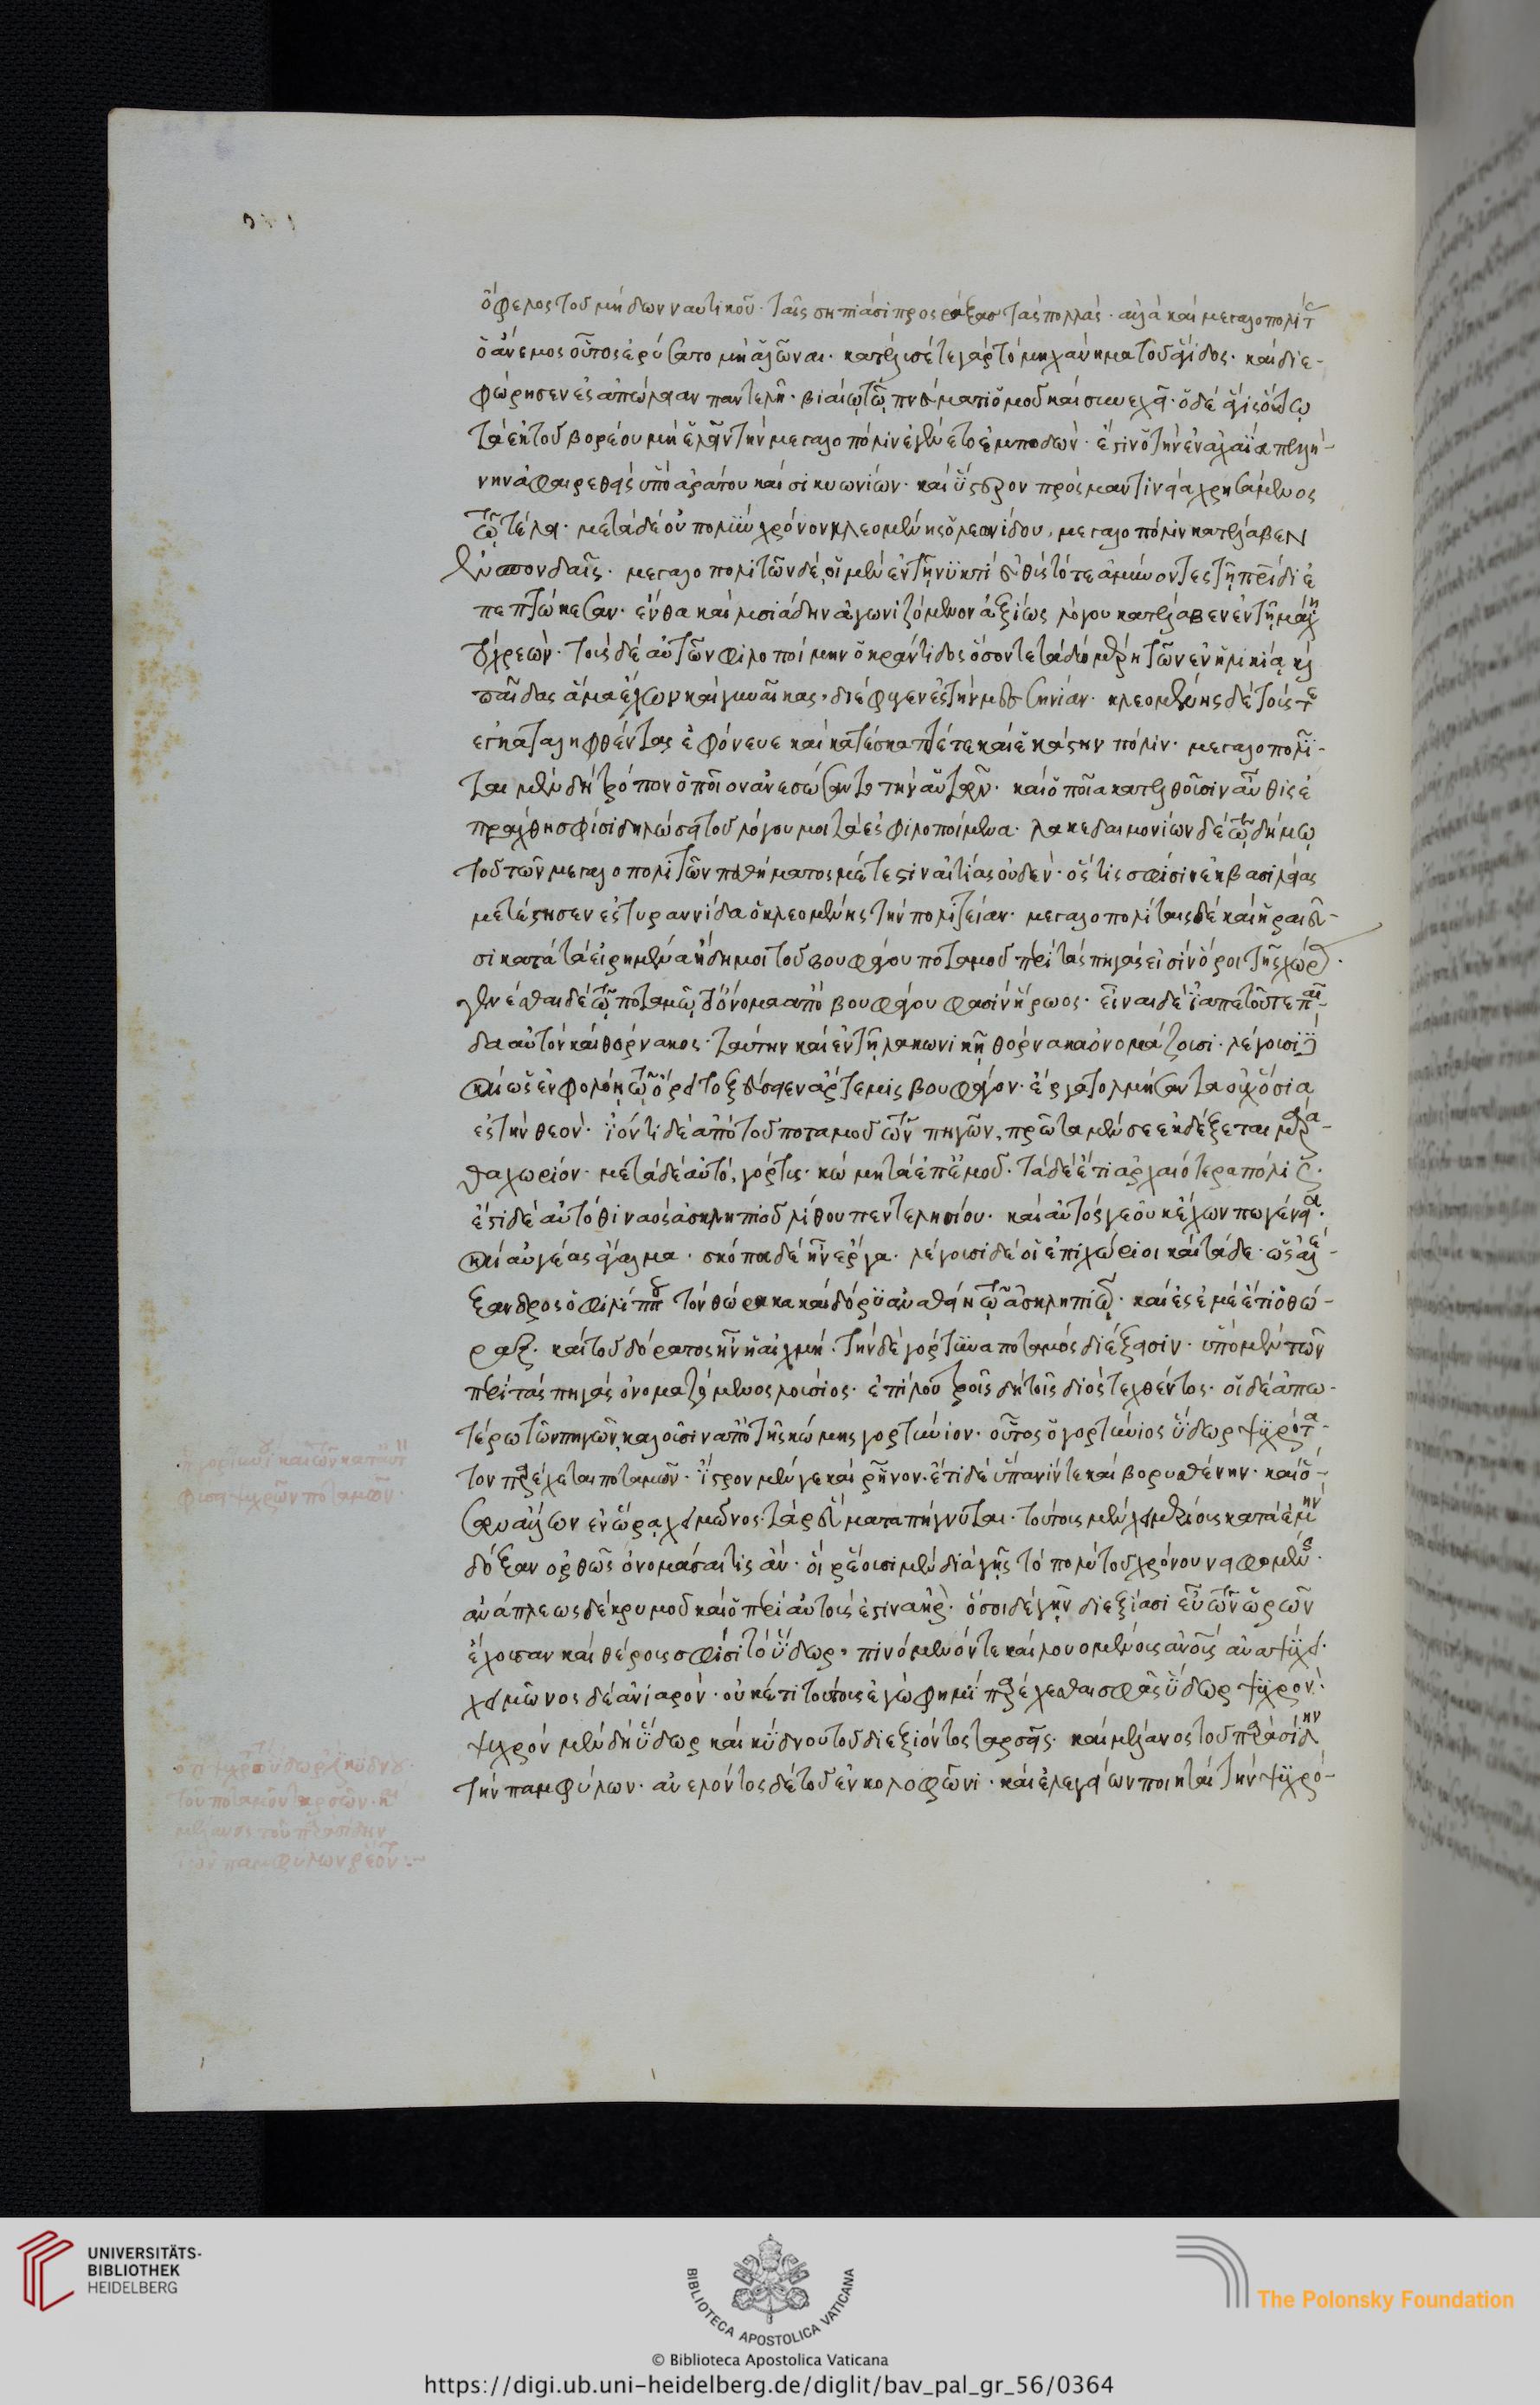 ὄφελος τοῦ μήδων ναυτικοῦ· ταῖς σηπιάσι προσράξας τὰς πολλάς· ἀλλὰ καὶ μεγαλοπολίτας
ὁ ἄνεμος οὗτος ἐρύσατο μὴ ἁλῶναι· κατέλυσέ τε γὰρ τὸ μηχάνημα τοῦ ἄγιδος· καὶ διε-
φόρησεν ἐς ἀπώλειαν παντελῆ· βιαίῳ τῷ πνεύματι ὁμοῦ καὶ συνεχεῖ· ὁ δὲ ἆγις ὅτῳ
τὰ ἐκ τοῦ βορέου μὴ ἑλεῖν τὴν μεγαλόπολιν ἐγένετο ἐμποδὼν· ἔστιν ὁ τὴν ἐν ἀχαΐα πελλή-
νην ἀφαιρεθεὶς ὑπὸ ἀράτου καὶ σικυωνίων· καὶ ὕστερον πρὸς μαντινείᾳ χρησάμενος
τῷ τέλει· μετὰ δὲ οὐ πολὺν χρόνον κλεομένης ὁ λεωνίδου, μεγαλόπολιν κατέλαβεν
ἐν σπονδαῖς· μεγαλοπολιτῶν δέ, οἱ μὲν ἐν τῇ νυκτὶ εὐθὺς τότε ἀμύνοντες τῇ πατρίδι ἐ
πεπτώκεσαν· ἔνθα καὶ λυσιάδην ἀγωνιζόμενον ἀξίως λόγου κατέλαβεν ἐν τῇ μάχῃ
τὸ χρεών· τοὺς δὲ αὐτῶν φιλοποίμην ὁ κραύγιδος ὅσον τε τὰ δύο μέρη τῶν ἐν ἡλικίᾳ καὶ
παῖδας ἅμα ἔχων καὶ γυναῖκας, διέφυγεν ἐς τὴν μεσσηνίαν· κλεομένης δὲ τούς τε
ἐγκαταληφθέντας ἐφόνευε καὶ κατέσκαπτέ τε καὶ ἔκαιεν τὴν πόλιν· μεγαλοπολῖ-
ται μὲν δὴ τρόπον ὁποῖον ἀνεσώσαντο τὴν αὑτῶν· καὶ ὁποῖα κατελθοῦσιν αὖθις ἐ
πράχθη σφίσι δηλώσει τοῦ λόγου μοι τὰ ἐς φιλοποίμενα· λακεδαιμονίων δὲ τῷ δήμῳ
τοῦ τῶν μεγαλοπολιτῶν παθήματος μέτεστιν αἰτίας οὐδέν· ὅς τις σφίσιν ἐκ βασιλείας
μετέστησεν ἐς τυραννίδα ὁ κλεομένης τὴν πολιτείαν· μεγαλοπολίταις δὲ καὶ ἡραιεῦ-
σι κατὰ τὰ εἰρημένα ἤδη μοι τοῦ βουφάγου ποταμοῦ περὶ τὰς πηγάς εἰσιν ὅροι τῆς χώρας·
γενέσθαι δὲ τῷ ποταμῷ τὸ ὄνομα ἀπὸ βουφάγου φασὶν ἥρωος· εἶναι δὲ ἰαπετοῦ τε παῖ-
δα αὐτὸν καὶ θόρνακος· ταύτην καὶ ἐν τῇ λακωνικῇ θόρνακα ὀνομάζουσι· λέγουσι δὲ
καὶ ὡς ἐν φολόῃ τῷ ὄρει τοξεύσειεν ἄρτεμις βουφάγον· ἔργα τολμήσαντα οὐχ ὅσια
ἐς τὴν θεόν· ἰόντι δὲ ἀπὸ τοῦ ποταμοῦ τῶν πηγῶν, πρῶτα μὲν σε ἐκδέξεται μαρα-
θα χωρίον· μετὰ δὲ αὐτό, γόρτυς· κώμη τὰ ἐπ' ἐμοῦ· τὰ δὲ ἔτι ἀρχαιότερα πόλις·
ἔστι δὲ αὐτόθι ναὸς ἀσκληπιοῦ λίθου πεντελησίου· καὶ αὐτός γε οὐκ ἔχων πω γένεια·
καὶ ὑγείας ἄγαλμα· σκόπα δὲ ἦν ἔργα· λέγουσι δὲ οἱ ἐπιχώριοι καὶ τάδε· ὡς ἀλέ-
ξανδρος ὁ φιλίππου τὸν θώρακα καὶ δόρυ ἀναθείη τῷ ἀσκληπιῷ· καὶ ἐς ἐμὲ ἔτι ὁ θώ-
ραξ· καὶ τοῦ δόρατος ἦν ἡ αἰχμή· τὴν δὲ γόρτυνα ποταμὸς διέξεισιν· ὑπὸ μὲν τῶν
περὶ τὰς πηγὰς ὀνομαζόμενος λούσιος· ἐπὶ λουτροῖς δὴ τοῖς διὸς τεχθέντος· οἱ δὲ ἀπω-
τέρω τῶν πηγῶν, καλοῦσιν ἀπὸ τῆς κώμης γορτύνιον· οὗτος ὁ γορτύνιος ὕδωρ ψυχρότα-
τον παρέχεται ποταμῶν· ἴστρον μέν γε καὶ ῥῆνον· ἔτι δὲ ὕπανίν τε καὶ βορυσθένην· καὶ ὅ-
σων ἄλλων ἐν ὥρᾳ χειμῶνος τὰ ῥεύματα πήγνυται· τούτοις μὲν χειμερίους κατὰ ἐμὴν
δόξαν ὀρθῶς ὀνομάσαι τις ἄν· οἳ ῥέουσι μὲν διὰ γῆς τὸ πολὺ τοῦ χρόνου νιφομένης·
ἀνάπλεως δὲ κρυμοῦ καὶ ὁ περὶ αὐτούς ἐστιν ἀήρ· ὅσοι δὲ γῆν διεξίασι εὖ τῶν ὡρῶν
ἔχουσαν καὶ θέρους σφίσι τὸ ὕδωρ, πινόμενόν τε καὶ λουομένους ἀνοὺς ἀναψύχει·
χειμῶνος δὲ ἀνιαρόν· οὐκέτι τούτους ἐγώ φημι παρέχεσθαι σφᾶς ὕδωρ ψυχρόν·
ψυχρὸν μὲν δὴ ὕδωρ καὶ κύδνου τοῦ διεξιόντος ταρσεῖς· καὶ μέλανος τοῦ παρὰ σίδην
τὴν παμφύλων· ἀνελόντος δὲ τοῦ ἐν κολοφῶνι· καὶ ἐλεγείων ποιηταὶ τὴν ψυχρό-
UNIVERSITÄTS-
BIBLIOTHEK
HEIDELBERG
BIBLIOTECA APOSTOLICA VATICANA
The Polonsky Foundation
© Biblioteca Apostolica Vaticana
https://digi.ub.uni-heidelberg.de/diglit/bav_pal_gr_56/0364